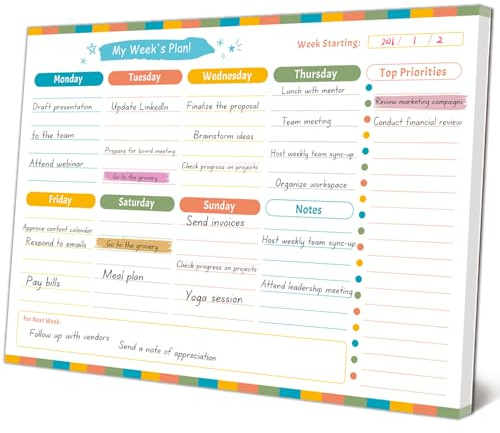 My Week's Plan!
Week Starting: 2026 / 1 / 2
Monday
Draft presentation
to the team
Attend webinar
Tuesday
Update LinkedIn
Prepare for board meeting
Go to the grocery
Wednesday
Finalize the proposal
Brainstorm ideas
Check progress on projects
Thursday
Lunch with mentor
Team meeting
Host weekly team sync-up
Organize workspace
Top Priorities
Review marketing campaigns
Conduct financial review
Friday
Approve content calendar
Respond to emails
Pay bills
Saturday
Go to the grocery
Meal plan
Sunday
Send invoices
Check progress on projects
Yoga session
Notes
Host weekly team sync-up
Attend leadership meeting
For Next Week:
Follow up with vendors
Send a note of appreciation